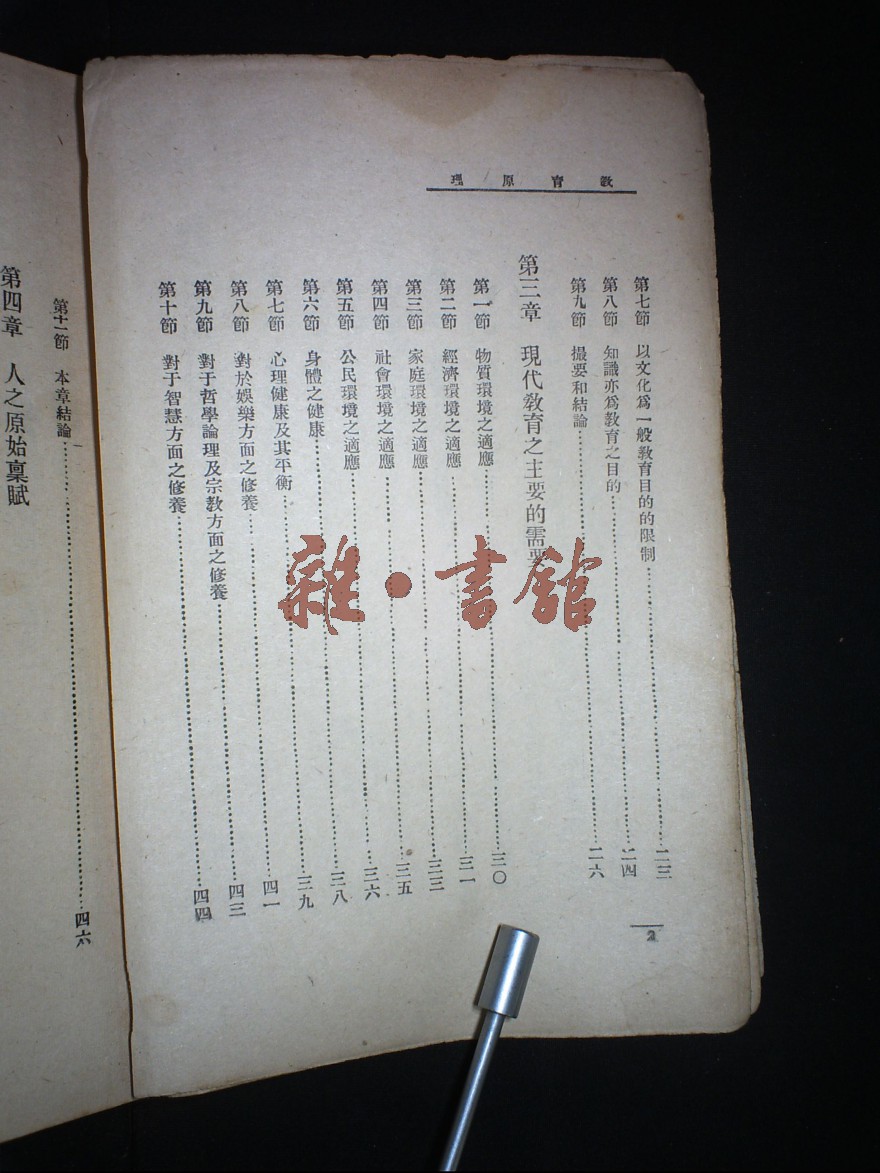 教育原理
第七節 以文化爲一般教育目的的限制 二三
第八節 知識亦爲教育之目的 二四
第九節 撮要和結論 二六
第三章 現代教育之主要的需要
第一節 物質環境之適應 三〇
第二節 經濟環境之適應 三一
第三節 家庭環境之適應 三三
第四節 社會環境之適應 三五
第五節 公民環境之適應 三六
第六節 身體之健康 三八
第七節 心理健康及其平衡 三九
第八節 對於娛樂方面之修養 四一
第九節 對于哲學論理及宗教方面之修養 四三
第十節 對于智慧方面之修養 四四
2
第十一節 本章結論 四六
第四章 人之原始稟賦
雜·書館